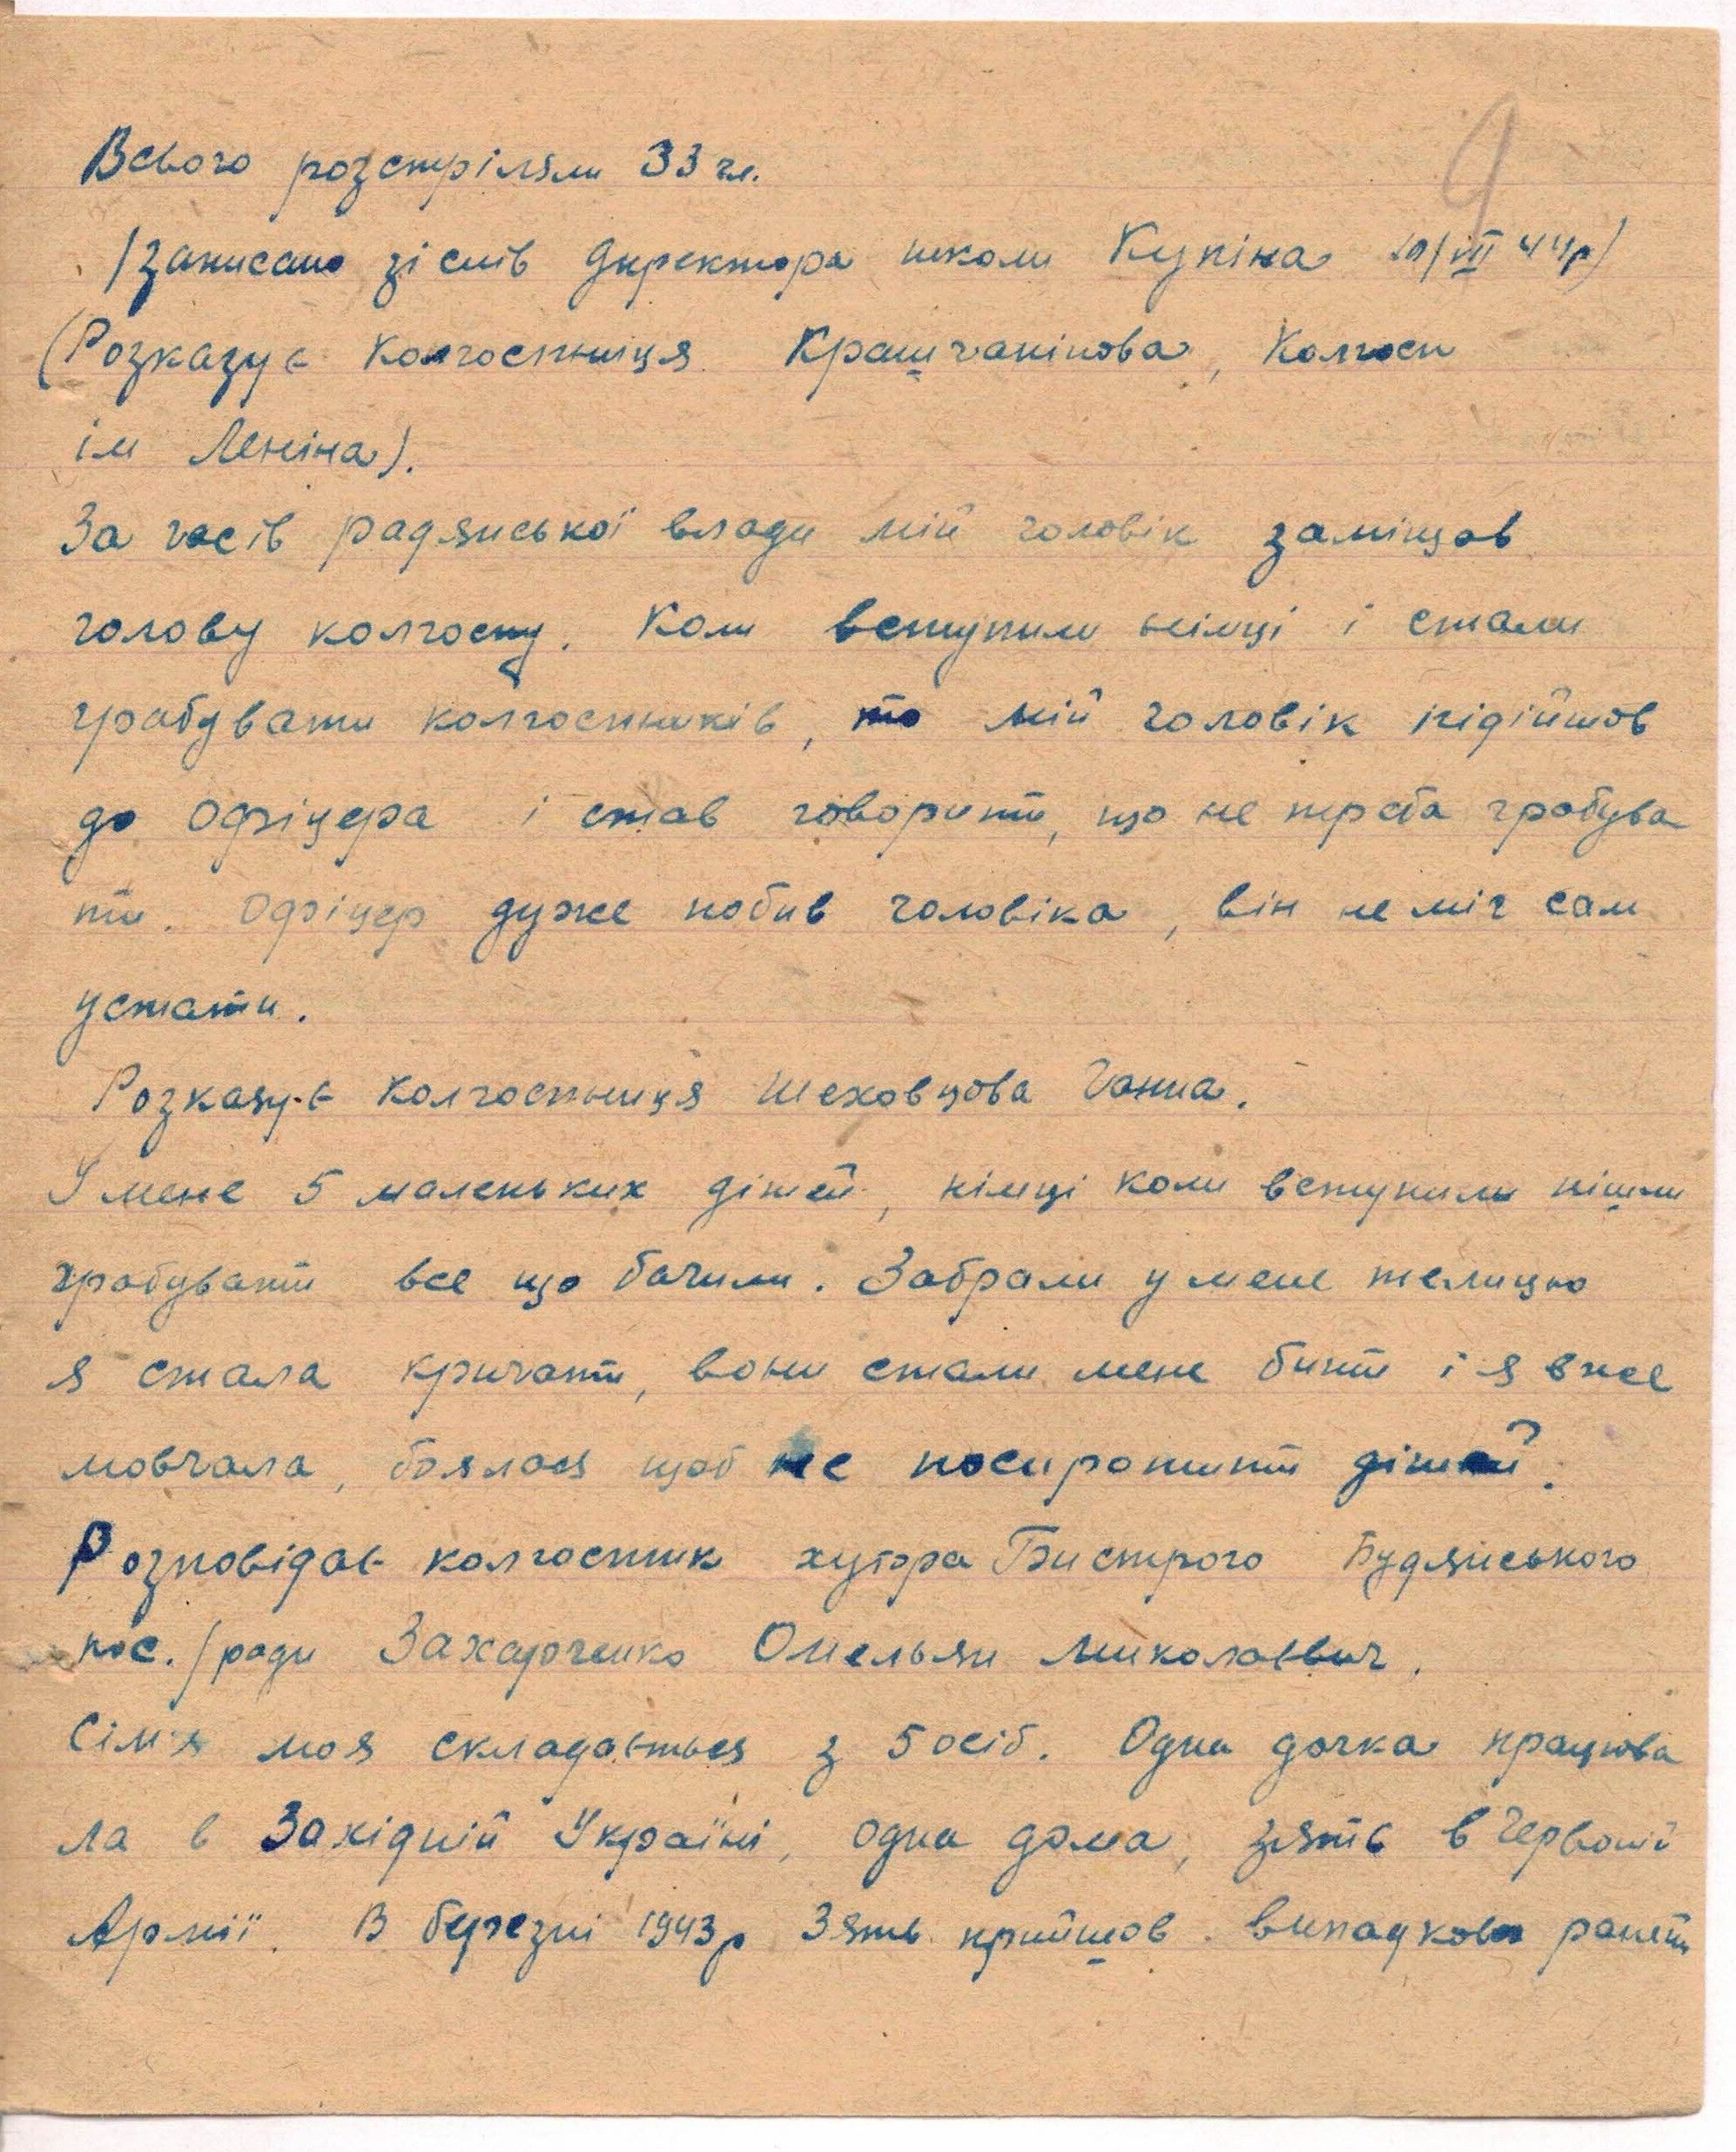 9
Всього розстріляли 33 чл.
/Записано зі слів директора школи Купіна /VII 44р/
(Розказує колгоспниця Крашчанінова, Колгосп
ім Леніна).
За часів радянської влади мій чоловік заміщав
голову колгоспу. Коли вступили німці і стали
грабувати колгоспників, то мій чоловік підійшов
до офіцера і став говорити, що не треба грабува
ти. Офіцер дуже побив чоловіка, він не міг сам
устати.
Розказує колгоспниця Шеховцова Ганна.
У мене 5 маленьких дітей, німці коли вступили пішли
грабувати все що бачили. Забрали у мене телицю
я стала кричати, вони стали мене бити і я вже
мовчала, боялася щоб не посиротити дітей.
Розповідає колгоспник хутора Бистрого Будянського
пос./ради Захарченко Омельян Миколаєвич.
Сім'я моя складається з 5 осіб. Одна дочка працюва
ла в Західній Україні, одна дома, зять в Червоній
Армії. В березні 1943р Зять прийшов випадково